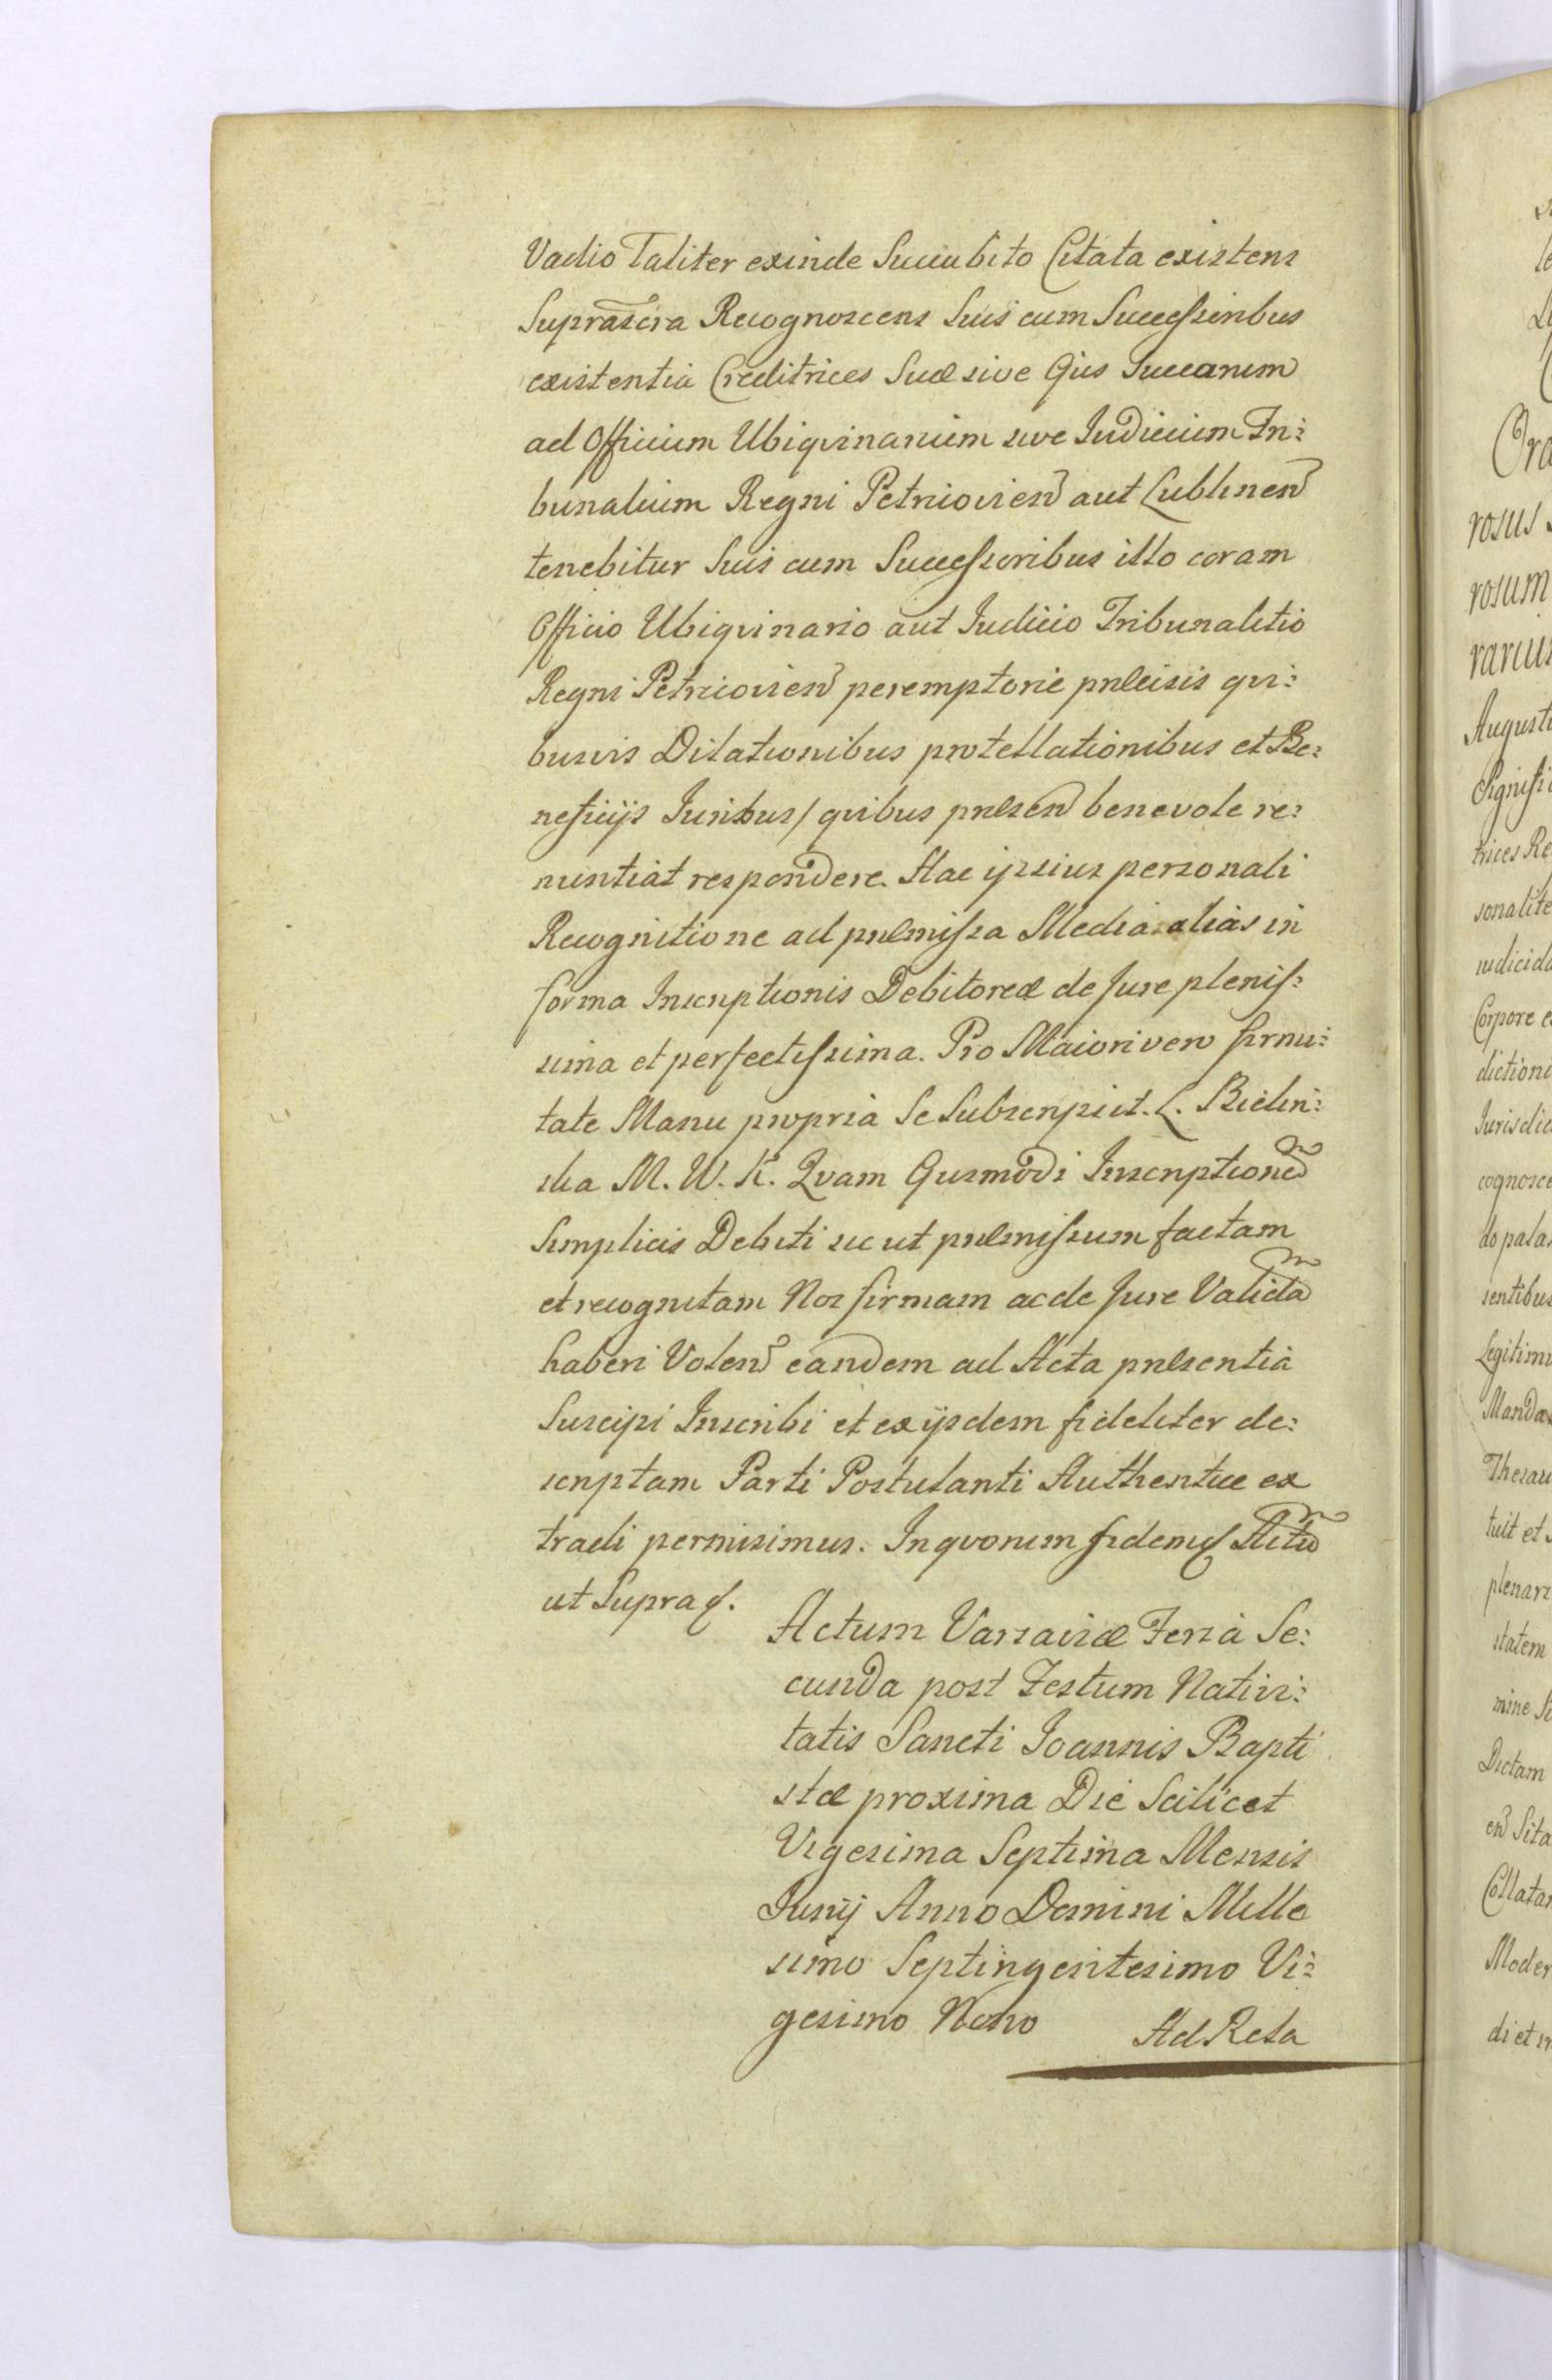 Vadio Taliter exinde Succubito Citata existens
Suprascra Recognoscens Suis cum Successoribus
existentia Creditrices Suæ sive Ejus Succanum
ad Officium Ubiqvinarium sive Iudicium Tri:
bunalium Regni Petricovien aut Lublinen
tenebitur Suis cum Successoribus illo coram
Officio Ubiqvinario aut Iudicio Tribunalitio
Regni Petricovien peremptorie prlcisis qvi:
busvis Dilationibus protellationibus et Be:
neficijs Iuribus / qvibus prlsen benevole re:
nuntiat respondere. Hac ipsius personali
Recognitione ad prlmissa Media alias in
forma Inscriptionis Debitoreæ de Jure plenis:
sima et perfectissima. Pro Maiori vero firmi:
tate Manu propria Se Subscripsit. L. Bielin:
ska M. W. K. Qvam Ejusmodi Inscriptione
Simplicis Debiti sic ut prlmissum factam
et recognitam Nos firmam ac de Jure Valida
haberi Volen eandem ad Acta prlsentia
Suscipi Inscribi et ex ijsdem fideliter de:
scriptam Parti Postulanti Authentice ex
tradi permisimus. In qvorum fidem Actu
ut Supra
Actum Varsaviæ Feria Se:
cunda post Festum Nativi:
tatis Sancti Joannis Bapti
stæ proxima Die Scilicet
Vigesima Septima Mensis
Junij Anno Domini Mille
simo Septingentesimo Vi:
gesimo Nono Ad Rela
Ora
rosus
rosum
Augusti
trices Re
sonalite
Corpore e
dictioni
Jurisdic
cognosce
do pala
sentibus
Legitimi
Manda
Thesau
tuit et
plenari
statem
Dictam
en Sita
Collata
Moder
di et in